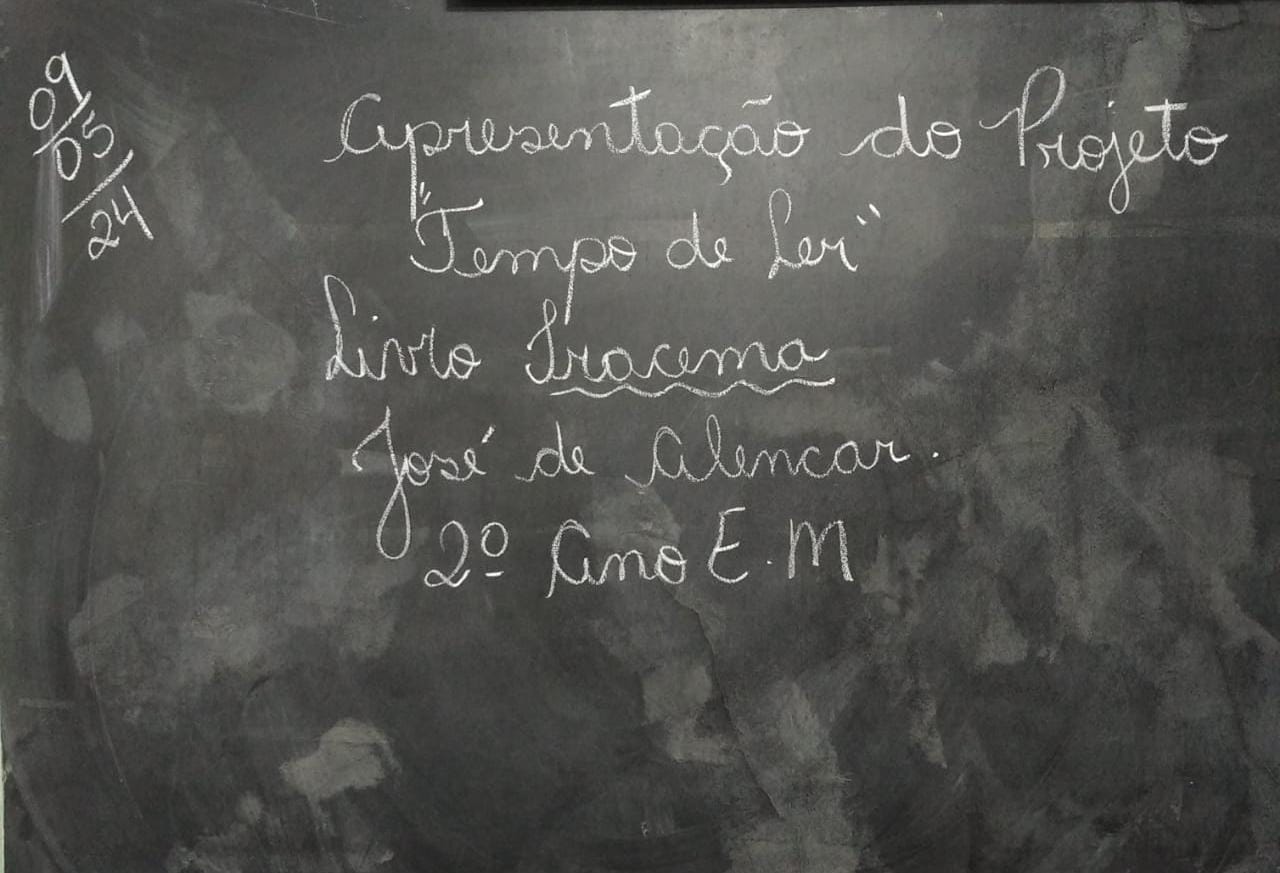 09/05/24
Apresentação do Projeto
"Tempo de Ler"
Livro Iracema
José de Alencar.
2º Ano E.M